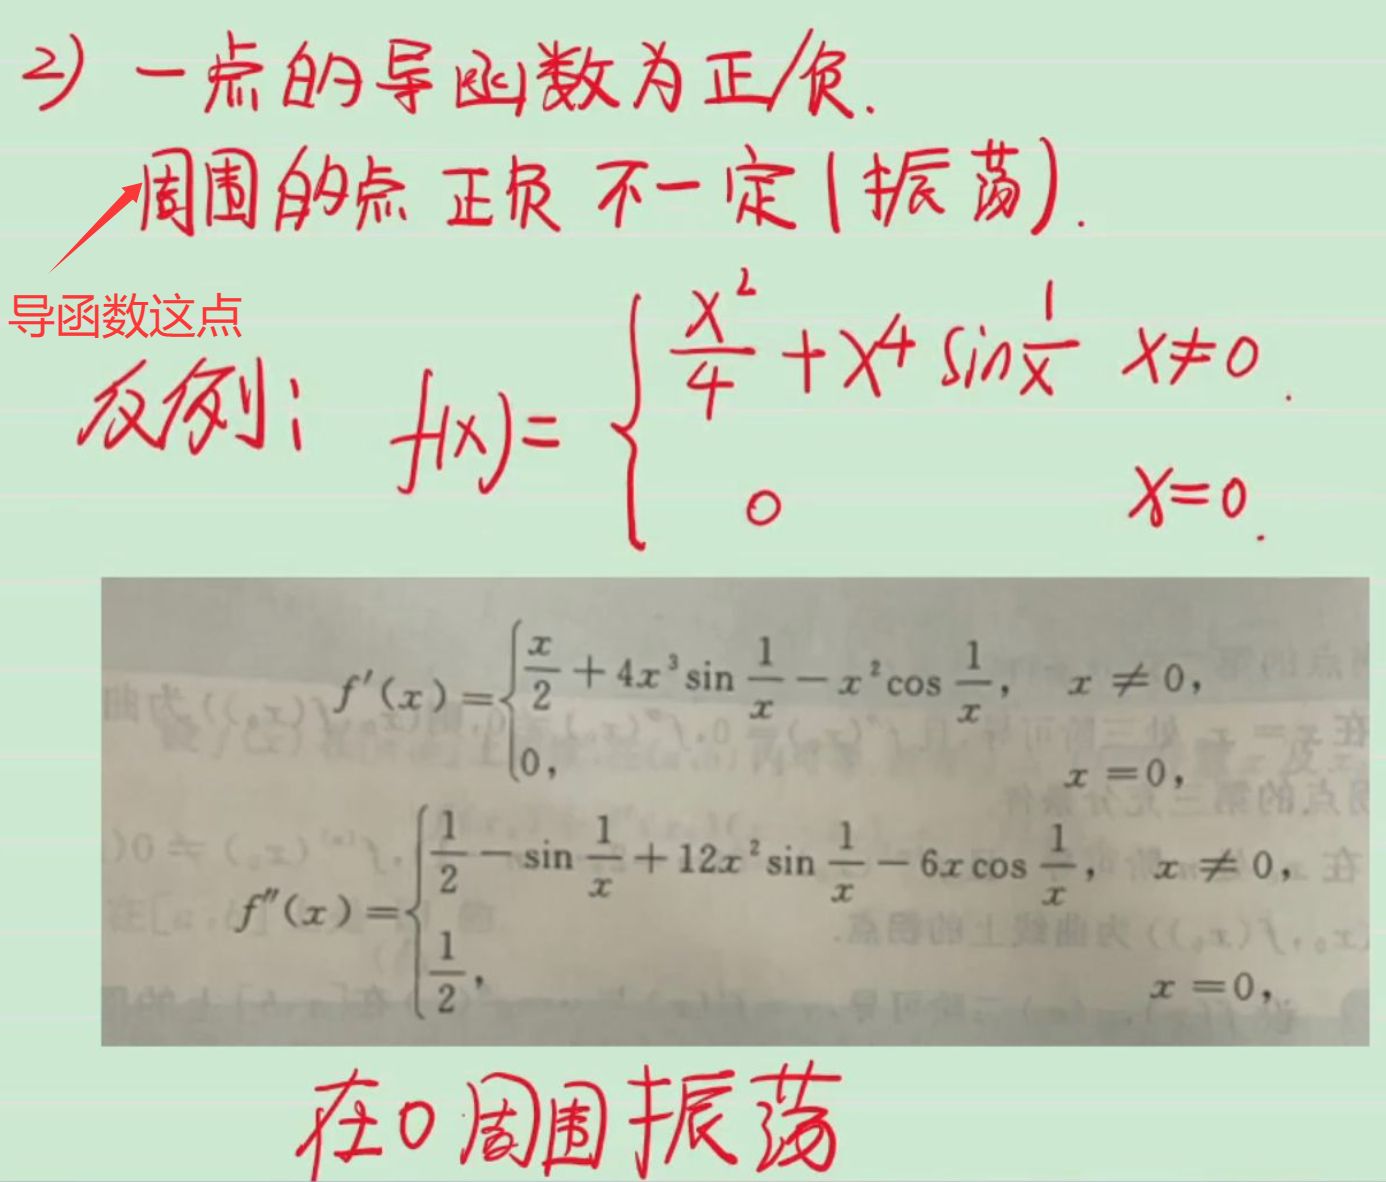 2) 一点的导函数为正/负.
周围的点 正负 不一定(振荡).
导函数这点
反例: f(x)= { x²/4 + x⁴ sin 1/x x≠0.
0 x=0.
f′(x)= { x/2 + 4x³ sin 1/x − x² cos 1/x, x ≠ 0,
0, x = 0,
f″(x)= { 1/2 − sin 1/x + 12x² sin 1/x − 6x cos 1/x, x ≠ 0,
1/2, x = 0,
在0周围振荡